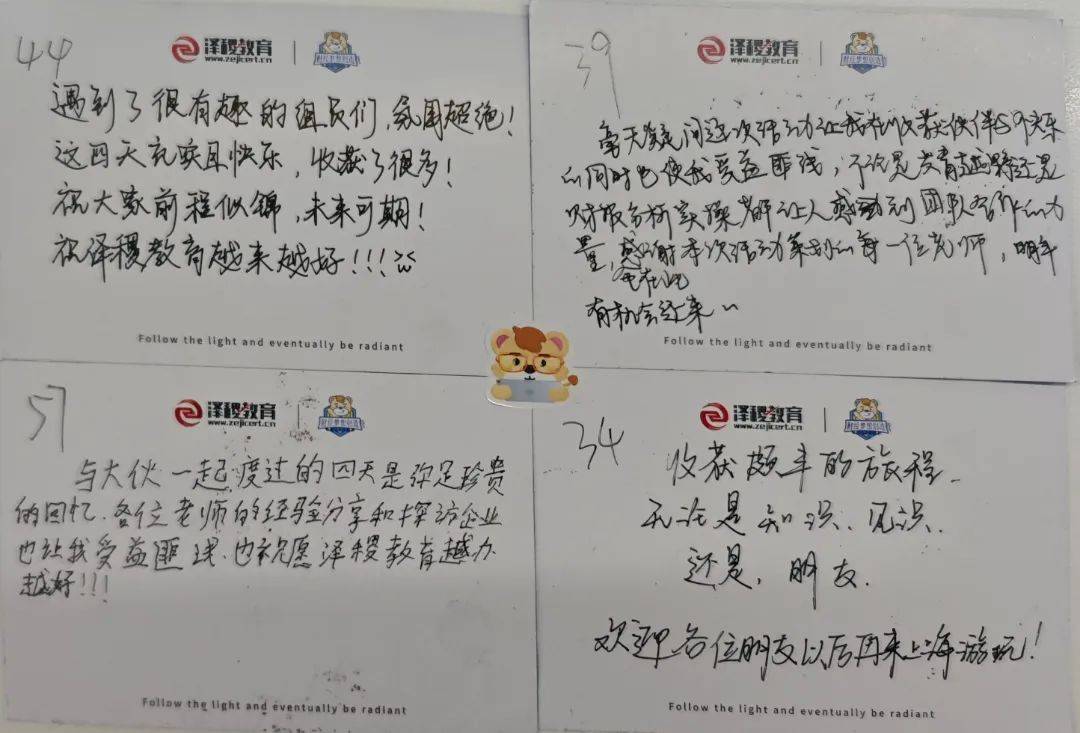 44
泽稷教育
www.zejicert.cn
财经梦想创造营
遇到了很有趣的组员们,氛围超绝!
这四天充实且快乐,收获了很多!
祝大家前程似锦,未来可期!
祝泽稷教育越来越好!!!
Follow the light and eventually be radiant
39
泽稷教育
www.zejicert.cn
问这次活动让我在收获伙伴与快乐
的同时也使我受益匪浅,不论是发言还是
财报分析实操都让人感动到团队合作的力
量,感谢本次活动策划的每一位老师,明年
有机会还来
Follow the light and eventually be radiant
57
泽稷教育
www.zejicert.cn
财经梦想创造营
与大伙一起度过的四天是弥足珍贵
的回忆.各位老师的经验分享和探访企业
也让我受益匪浅.也祝愿泽稷教育越办
越好!!!
Follow the light and eventually be radiant
34
泽稷教育
www.zejicert.cn
财经梦想创造营
收获颇丰的旅程.
无论是知识、见识
还是,朋友.
欢迎各位朋友以后再来上海游玩!
Follow the light and eventually be radiant